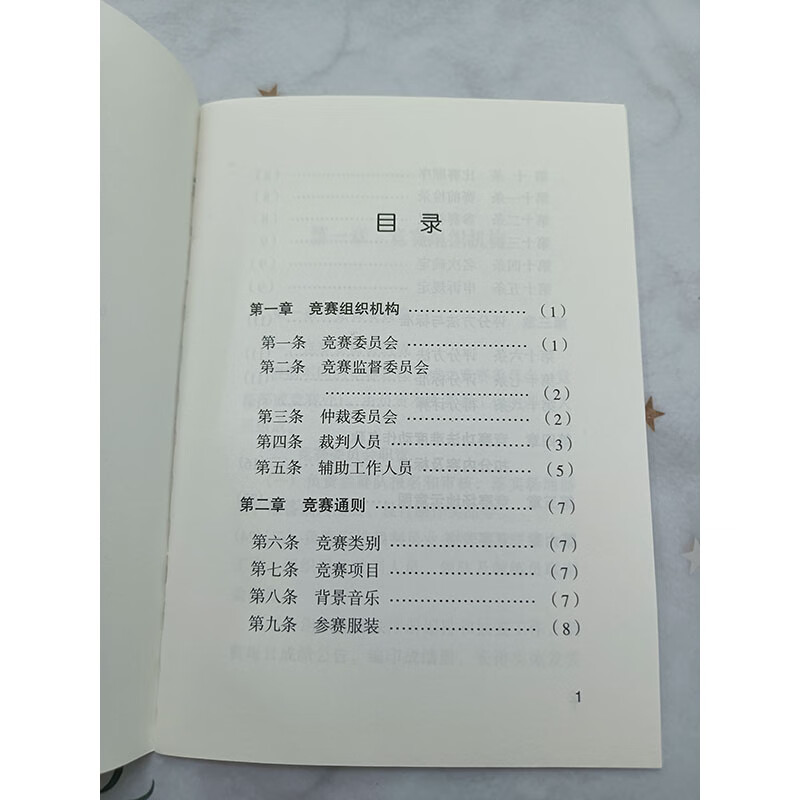 目 录
第一章 竞赛组织机构 …………………… (1)
第一条 竞赛委员会 ……………………… (1)
第二条 竞赛监督委员会
…………………………………… (2)
第三条 仲裁委员会 ……………………… (2)
第四条 裁判人员 ………………………… (3)
第五条 辅助工作人员 …………………… (5)
第二章 竞赛通则 ………………………… (7)
第六条 竞赛类别 ………………………… (7)
第七条 竞赛项目 ………………………… (7)
第八条 背景音乐 ………………………… (7)
第九条 参赛服装 ………………………… (8)
1